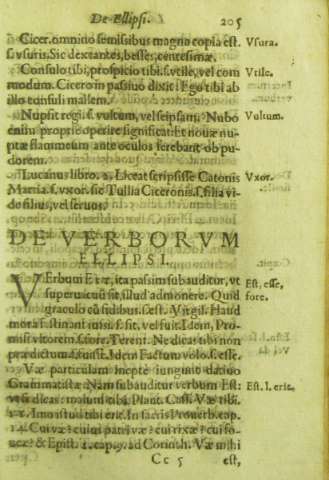 De Ellipsi. 205
Cicer. omnino semissibus magna copia est. Vsura.
s. vsuris. Sic dextantes, besses, centesimæ.
Consulo tibi, prospicio tibi. s. vtile, vel com Vtile.
modum. Cicero in passiuo dixit: Ego tibi ab
illo consuli mallem.
Nupsit regi. s. vultum, vel seipsam. Nubo Vultum.
enim proprie operire significat: Et nouæ nu-
ptæ flammeum ante oculos ferebant ob pu-
dorem.
Lucanus libro. 2. Liceat scripsisse Catonis Vxor.
Martia. s. vxor. sic Tullia Ciceronis. s. filia vi-
de filius, vel seruus.
DE VERBORVM
ELLIPSI.
VErbum Est, ita passim subauditur, vt Est, esse,
superuacuū sit, illud admonere. Quid fore.
graculo cū fidibus. s. est. Virgil. Haud
mora festinant iussi. s. sit, vel fuit. Idem, Pro-
misi vltorem. s. fore. Terent. Ne dicas tibi non
prædictum. s. fuisse. Idem Factum volo. s. esse.
Væ particulam inepte iungunt datiuo
Grammatistæ. Nam subauditur verbum Est: Est. l. erit.
vt si dicas: malum tibi. Plaut. Casi. Væ tibi.
Amostudi tibi erit. In sacris Prouerb. cap.
Cui væ? cuius patri væ? cui rixæ? cui fo-
ueæ? & Epist. 1. cap. 9. ad Corinth. Væ mihi
Cc 5 est,